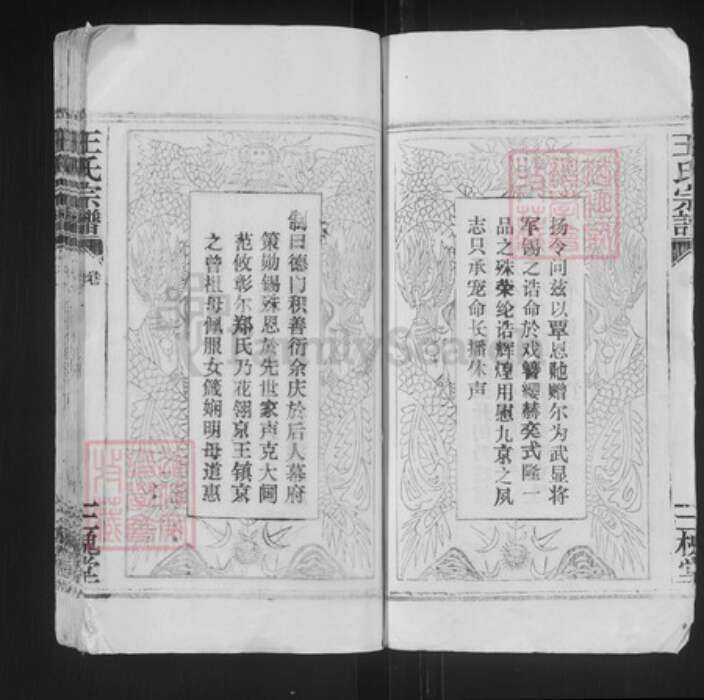 王氏宗譜
三槐堂
扬令问兹以覃恩貤赠尔为武显将
军锡之诰命於戏簪缨赫奕式隆一
品之殊荣纶诰辉煌用慰九京之夙
志只承宠命长播休声
制曰德门积善衍余庆於后人幕府
策勋锡殊恩於先世家声克大阃
范攸彰尔郑氏乃花翎京王镇京
之曾祖母佩服女箴娴明母道惠
王氏宗譜
卷
三槐堂
FamilySearch